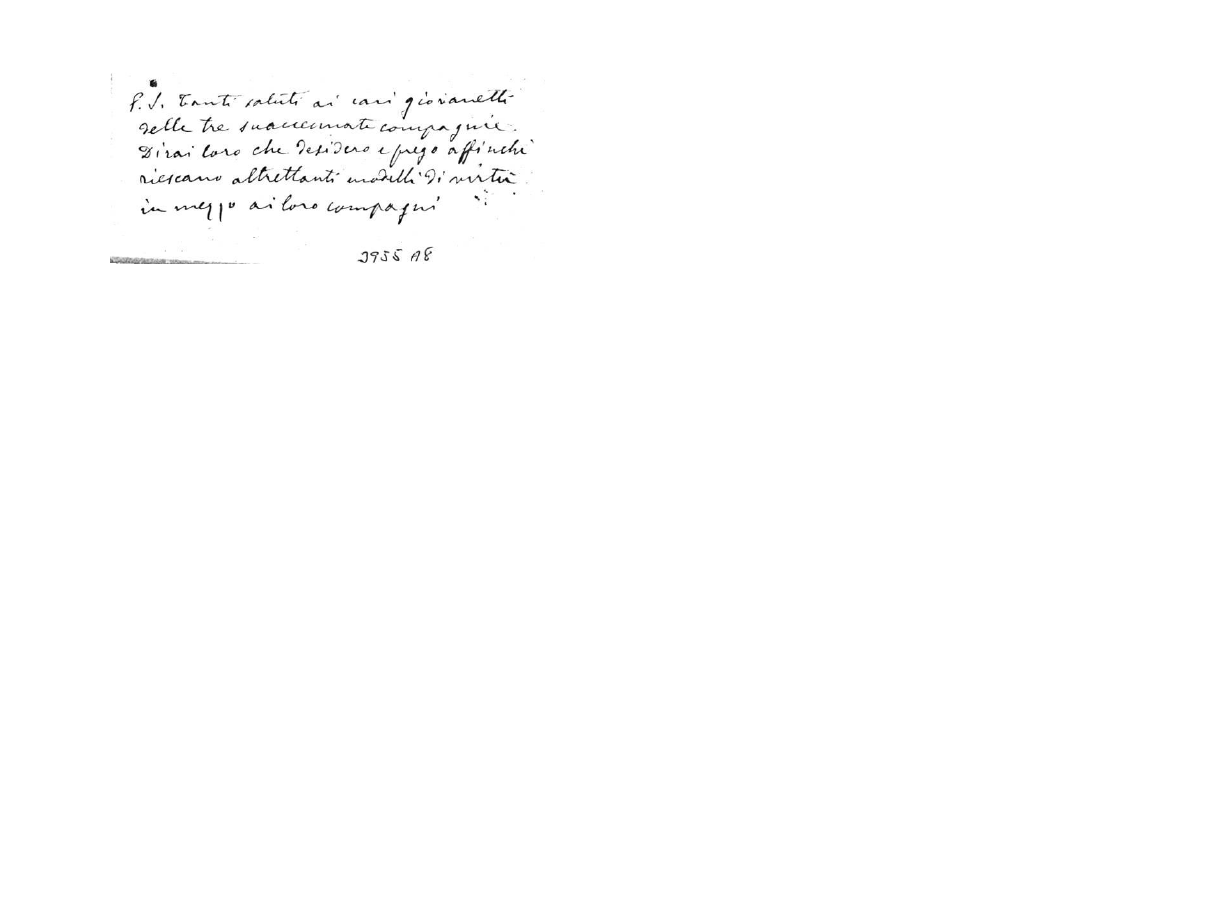 P.S. Tanti saluti ai cari giovanetti
delle tre suaccennate compagnie.
Dirai loro che desidero e prego affinchè
riescano altrettanti modelli di virtù
in mezzo ai loro compagni
3955 A8